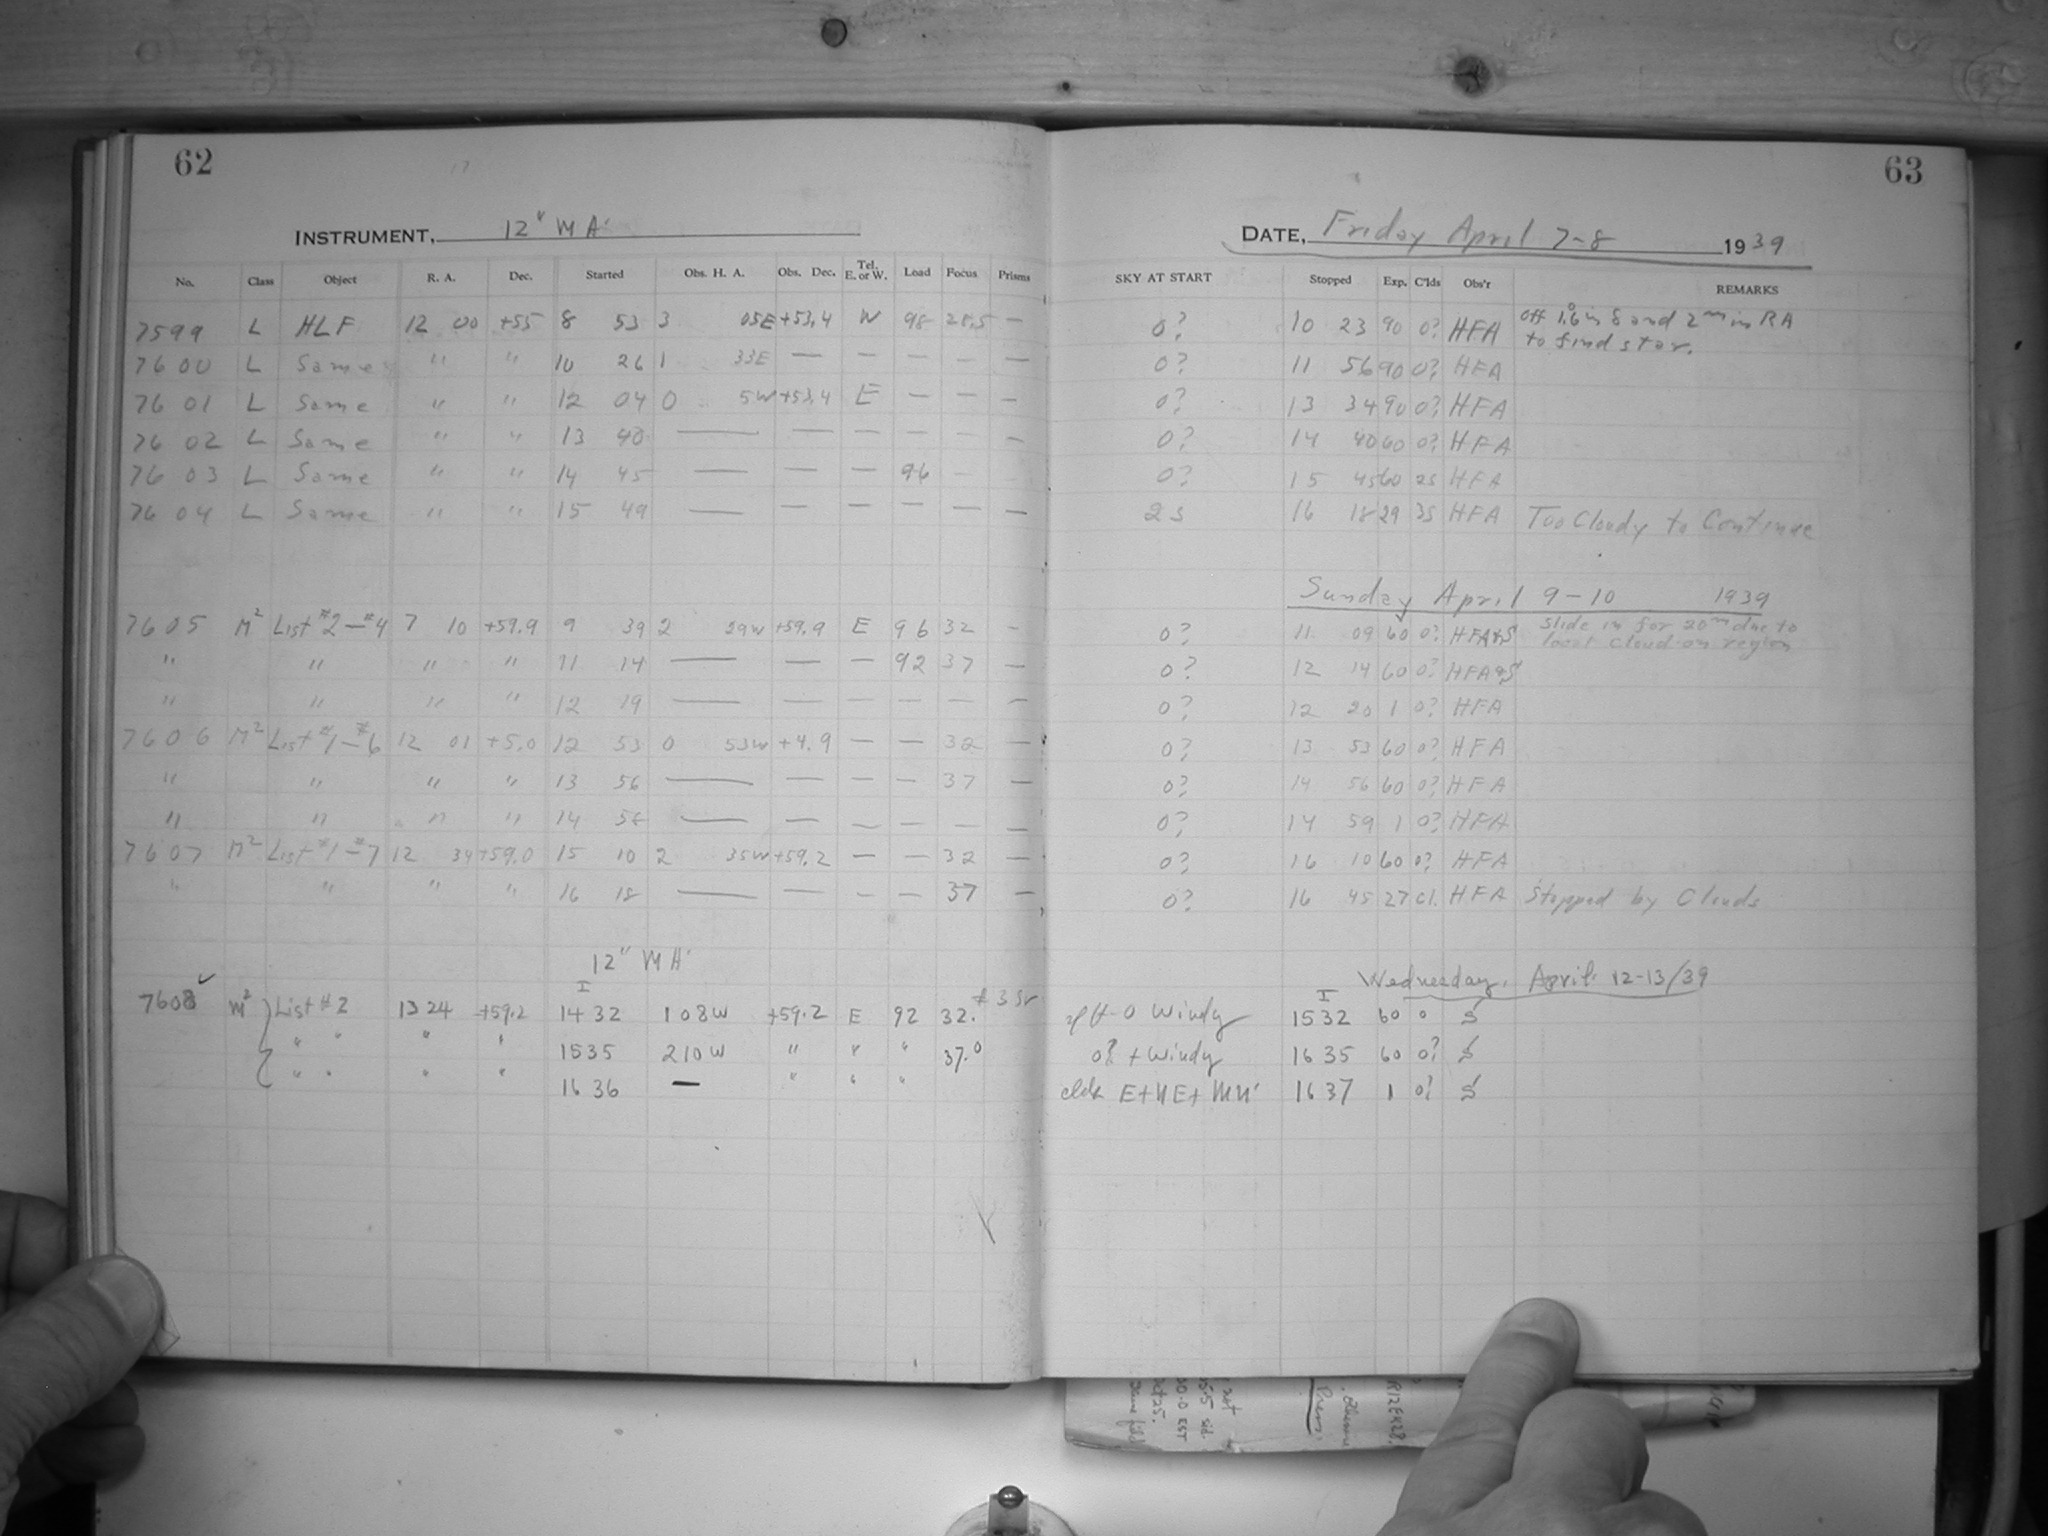 62
INSTRUMENT, 12" MA'
No. Class Object R. A. Dec. Started Obs. H. A. Obs. Dec. Tel. E. or W. Load Focus Prisms
7599 L HLF 12 00 +55 8 53 3 05E +53.4 W 98 28.5 —
7600 L Same " " 10 26 1 33E — — — — —
7601 L Same " " 12 04 0 5W +53.4 E — — —
7602 L Same " " 13 40 — — — — — —
7603 L Same " " 14 45 — — — 96 —
7604 L Same " " 15 49 — — — — — —
7605 M² List #2—#4 7 10 +59.9 9 39 2 29W +59.9 E 96 32 —
" " " " 11 14 — — — 92 37 —
" " " " 12 19 — — — — — —
7606 M² List #1—#6 12 01 +5.0 12 53 0 53W +4.9 — — 32 —
" " " " 13 56 — — — — 37 —
" " " " 14 58 — — — — — —
7607 M² List #1—#7 12 34 +59.0 15 10 2 35W +59.2 — — 32 —
" " " " 16 18 — — — — 37 —
12" MA'
I
7608 ✓ M² List #2 13 24 +59.2 14 32 1 08W +59.2 E 92 32.
" " " " 15 35 2 10W " " " 37.0
" " " " 16 36 — " " "
63
DATE, Friday April 7-8 1939
SKY AT START Stopped Exp. C'lds Obs'r REMARKS
0? 10 23 90 0? HFA off 1.6° in δ and 2ᵐ in RA
to find star.
0? 11 56 90 0? HFA
0? 13 34 90 0? HFA
0? 14 40 60 0? HFA
0? 15 45 60 2S HFA
2S 16 18 29 3S HFA Too Cloudy to Continue
Sunday April 9-10 1939
0? 11 09 60 0? HFA+S Slide in for 20ᵐ due to
local cloud on region
0? 12 14 60 0? HFA+S
0? 12 20 1 0? HFA
0? 13 53 60 0? HFA
0? 14 56 60 0? HFA
0? 14 59 1 0? HFA
0? 16 10 60 0? HFA
0? 16 45 27 cl. HFA Stopped by Clouds
Wednesday, April 12-13/39
I
0 Windy 15 32 60 0 S
0? + Windy 16 35 60 0? S
clds E+NE+ 16 37 1 0? S